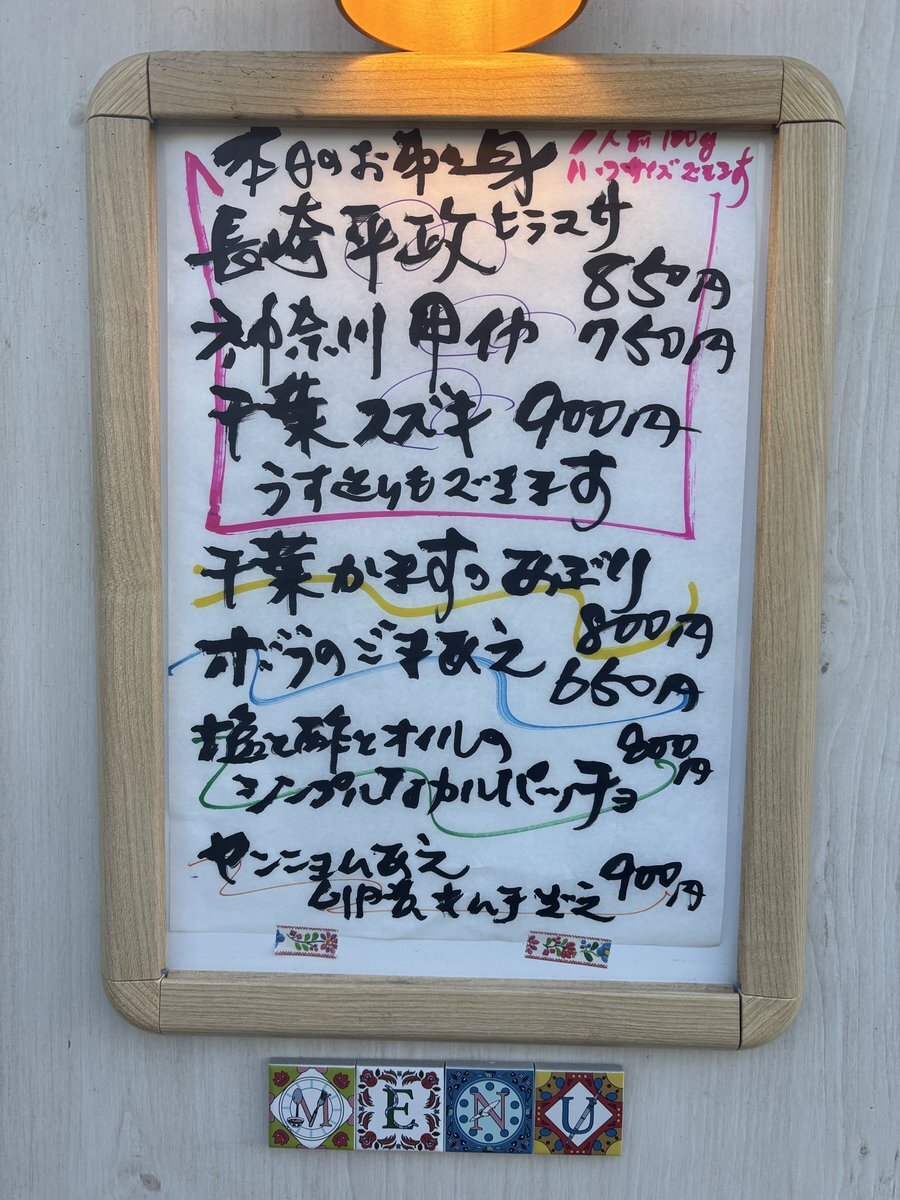 本日のお刺し身
1人前100g
ハーフサイズできます
長崎 平政 ヒラマサ
850円
神奈川 甲イカ 750円
千葉 スズキ 900円
うす造りもできます
千葉かますのあぶり
800円
ボラのごまあえ
660円
塩と酢とオイルの
シンプルなカルパッチョ 800円
ヤンニョムあえ
卵黄キムチ 900円
MENU